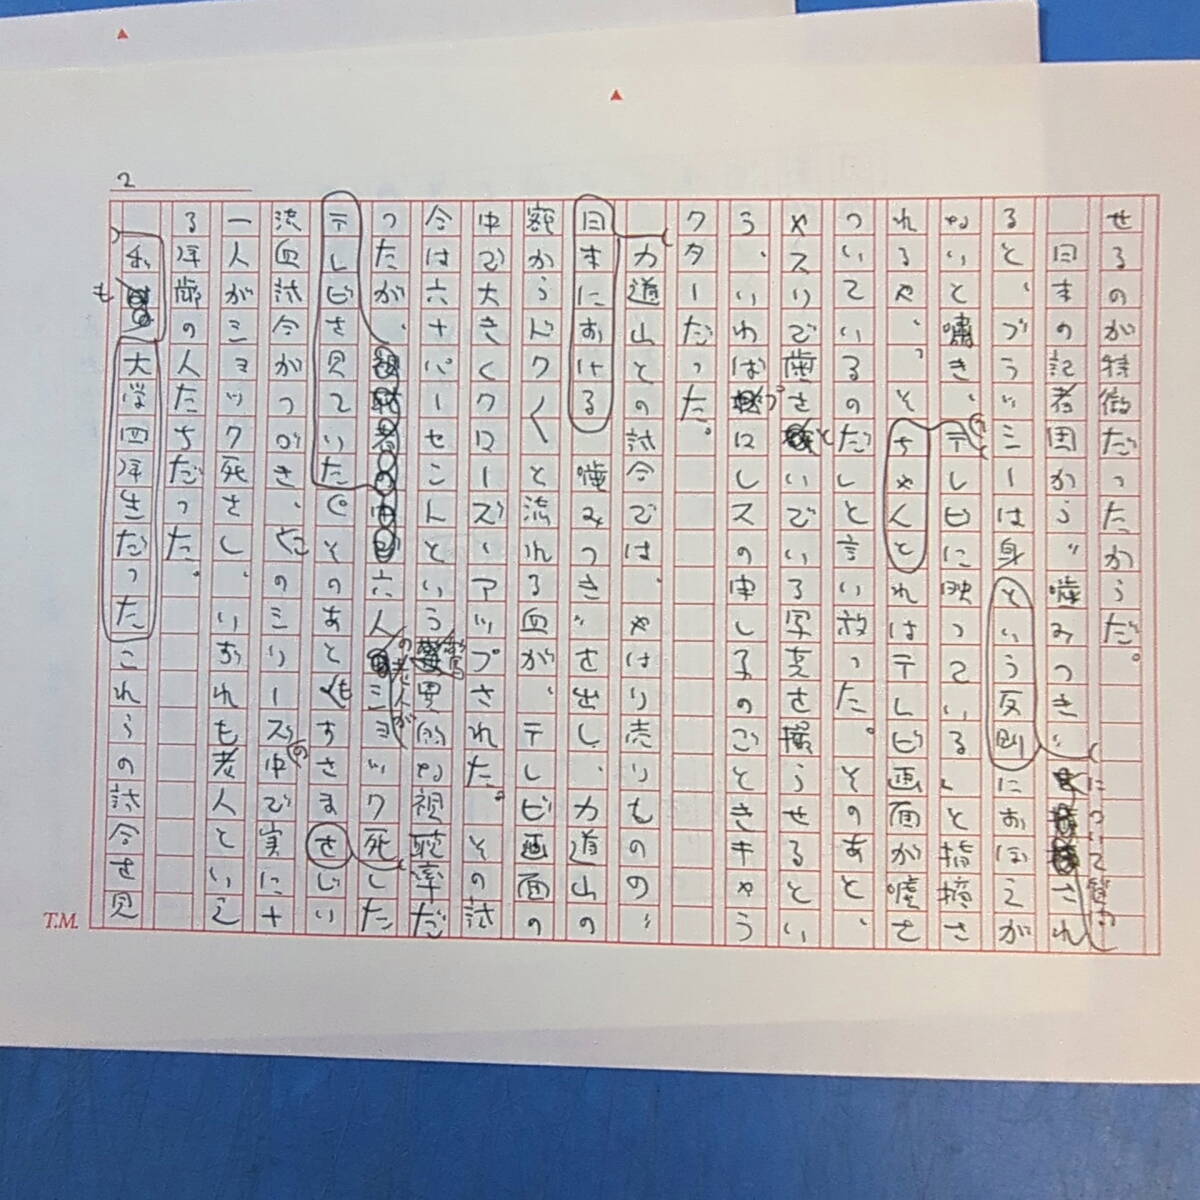 2
せるのが特徴だったからだ。
日本の記者団から〝噛みつき〟について質問され
ると、ブラッシーは身という反則におぼえが
ないと嘯き、テレビに映っている、と指摘さ
れるや、〝そちゃんとれはテレビ画面が嘘を
ついているのだ〟と言い放った。そのあと、
ヤスリで歯をといでいる写真を撮らせるとい
う、いわばプロレスの申し子のごときキャラ
クターだった。
力道山との試合では、やはり売りものの〝
日本における噛みつき〟を出し、力道山の
額からドクドクと流れる血が、テレビ画面の
中で大きくクローズ・アップされた。その試
合は六十パーセントという驚異的な視聴率だ
ったが、六人の老人がショック死した
テレビを見ていた。そのあともすさまじい
流血試合がつづき、このシリーズの中で実に十
一人がショック死をし、いずれも老人といえ
る年齢の人たちだった。
私も大学四年生だったこれらの試合を見
T.M.